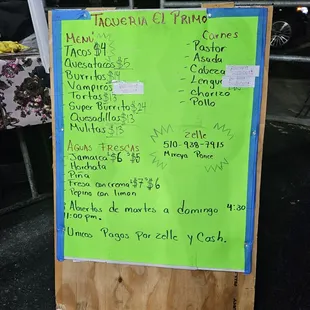 Taqueria El Primo
Menú
Tacos $4
Quesatacos $5
Burritos
Vampiros
Tortas $13
Super Burrito $24
Quesadillas $13
Mulitas $13
Carnes
- Pastor
- Asada
- Cabeza
- Lengua
- chorizo
- Pollo
Zelle
510-938-7915
Mireya Ponce
Aguas Frescas
Jamaica $6 $5
Horchata
Piña
Fresa con crema $7 $6
Pepino con limon
¡Abiertos de martes a domingo 4:30
11:00 pm.
Unicos Pagos Por zelle y Cash.